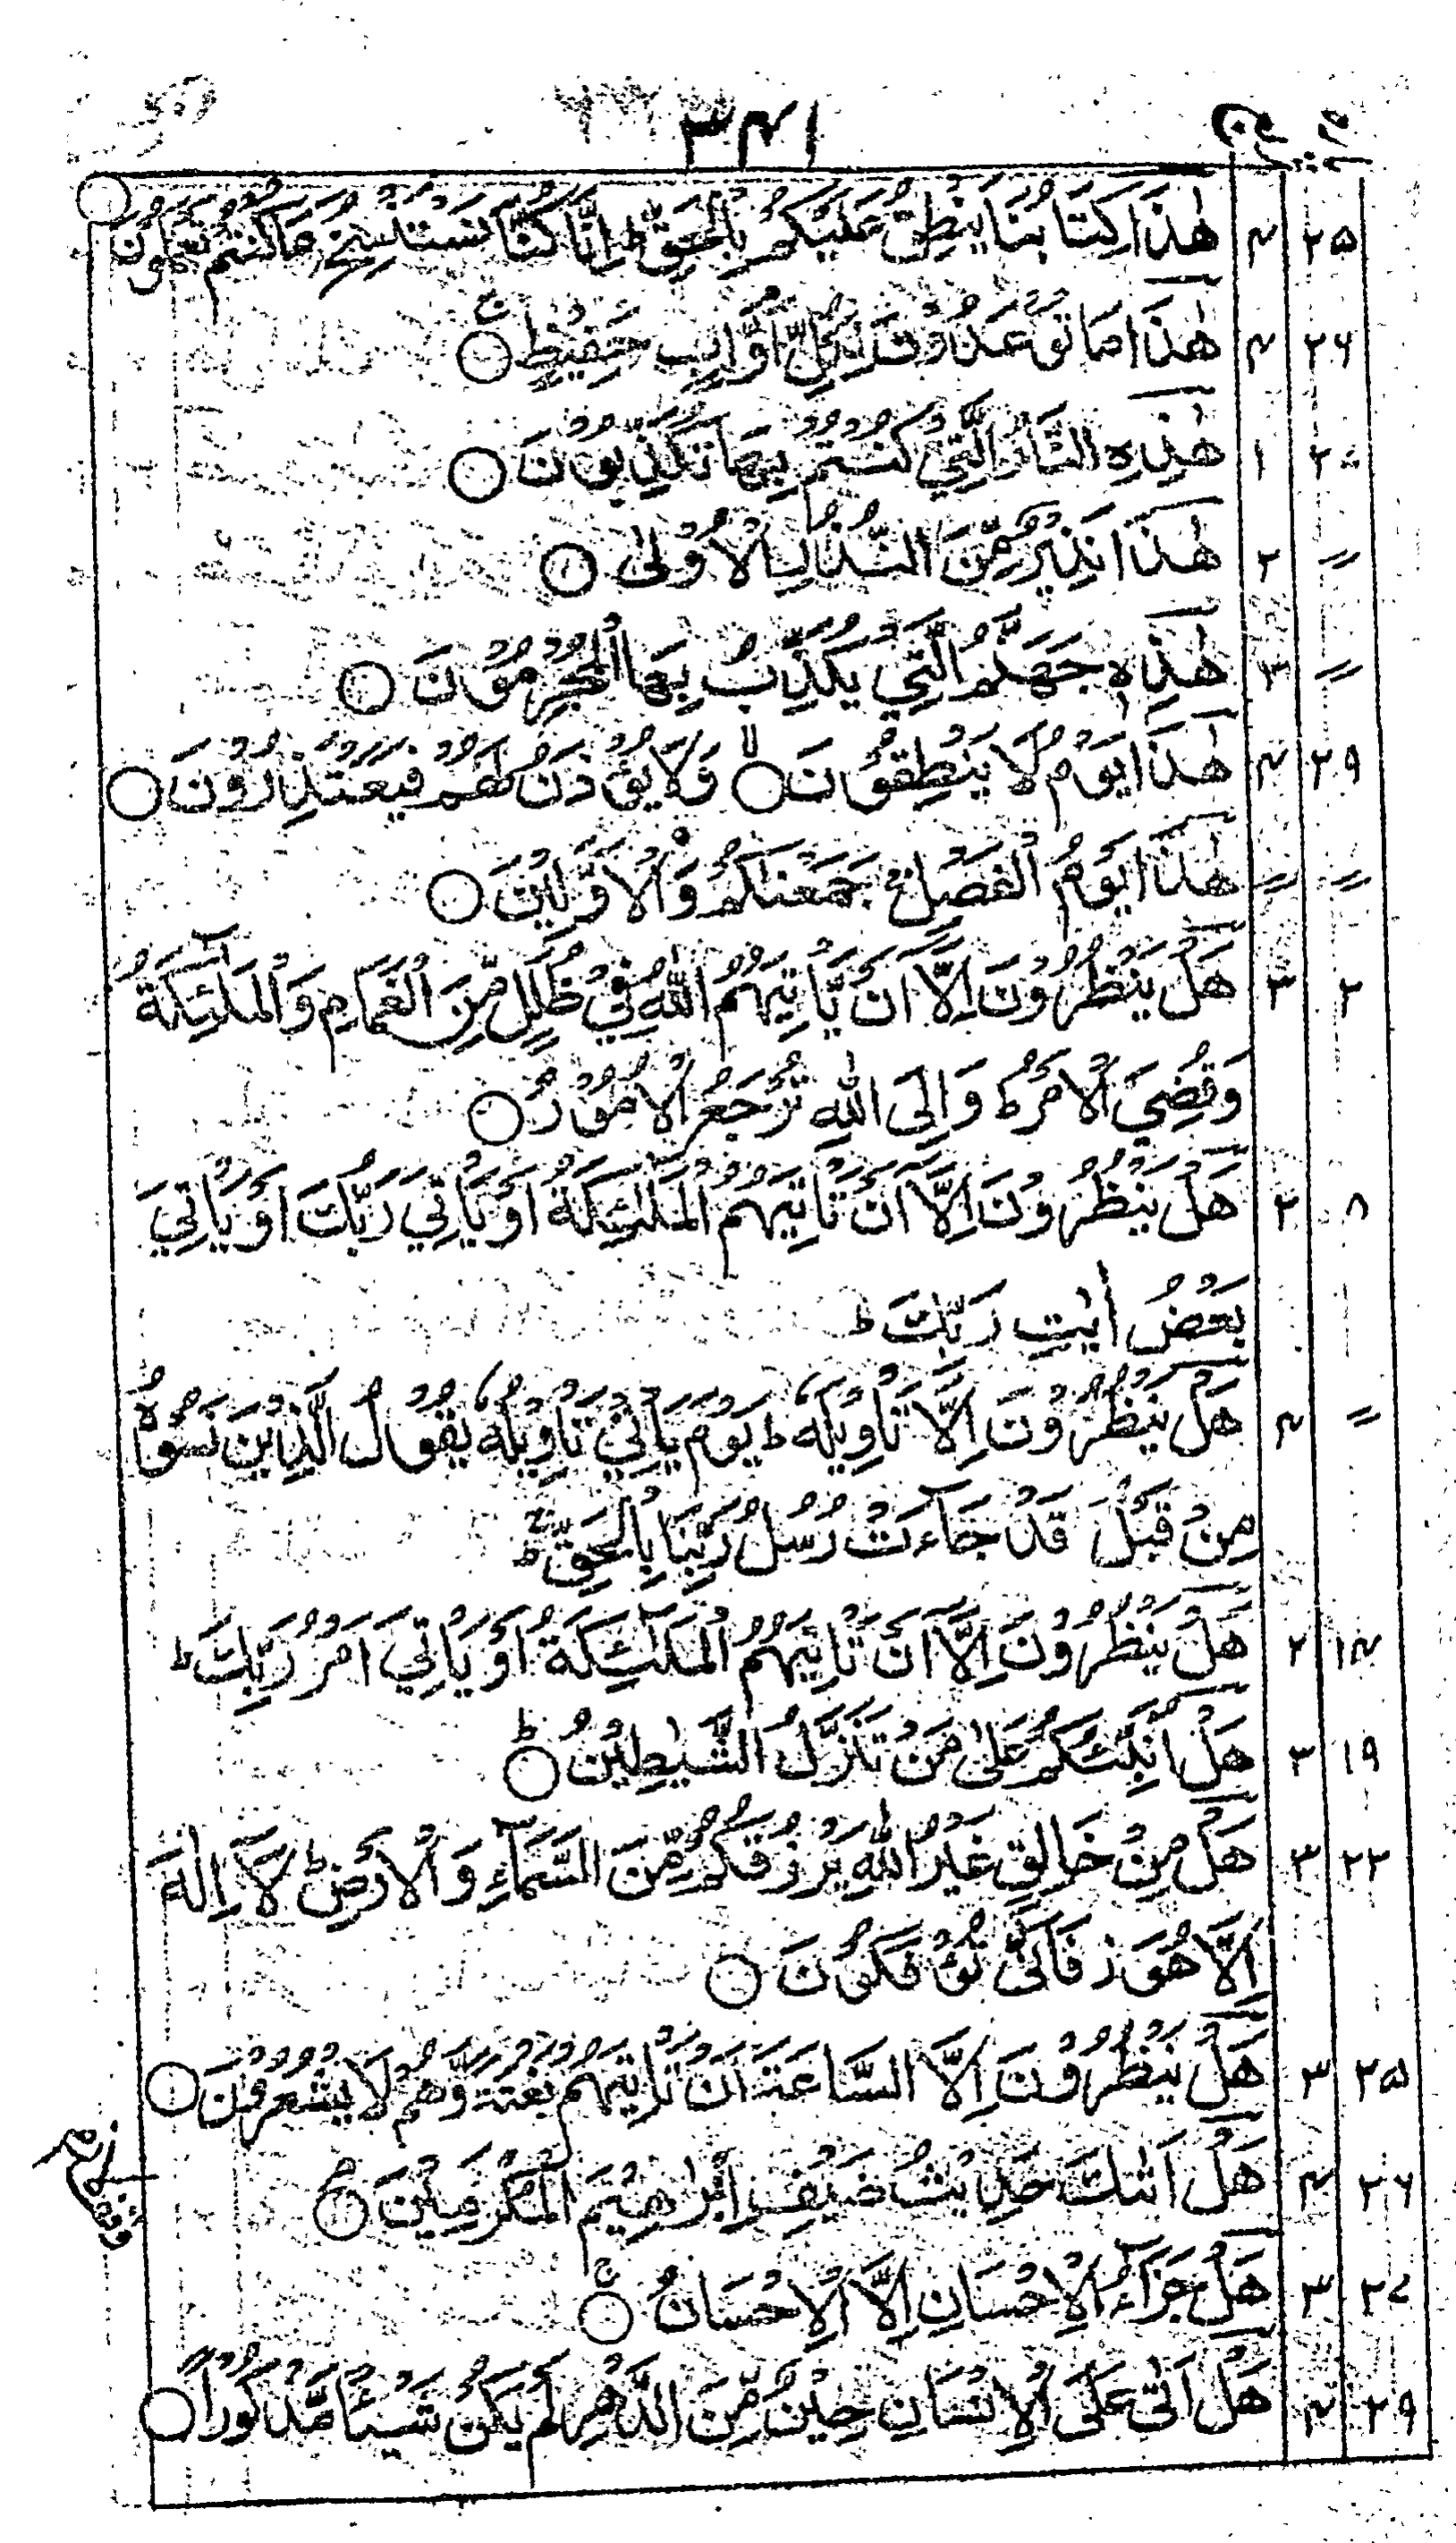 ۳۴۱
۲۵ ۴ هٰذَا كِتَابُنَا يَنْطِقُ عَلَيْكُمْ بِالْحَقِّ ط اِنَّا كُنَّا نَسْتَنْسِخُ مَا كُنْتُمْ تَعْمَلُوْنَ ○
۲۶ ۴ هٰذَا مَا تُوْعَدُوْنَ لِكُلِّ اَوَّابٍ حَفِيْظٍ ○ ج
۲۷ ۱ هٰذِهِ النَّارُ الَّتِيْ كُنْتُمْ بِهَا تُكَذِّبُوْنَ ○
〃 ۲ هٰذَا نَذِيْرٌ مِّنَ النُّذُرِ الْاُوْلٰى ○
〃 ۳ هٰذِهٖ جَهَنَّمُ الَّتِيْ يُكَذِّبُ بِهَا الْمُجْرِمُوْنَ ○
۲۹ ۴ هٰذَا يَوْمُ لَا يَنْطِقُوْنَ ○ لا وَلَا يُؤْذَنُ لَهُمْ فَيَعْتَذِرُوْنَ ○
〃 〃 هٰذَا يَوْمُ الْفَصْلِ ج جَمَعْنٰكُمْ وَالْاَوَّلِيْنَ ○
۲ ۳ هَلْ يَنْظُرُوْنَ اِلَّآ اَنْ يَّاْتِيَهُمُ اللّٰهُ فِيْ ظُلَلٍ مِّنَ الْغَمَامِ وَالْمَلٰٓئِكَةُ
وَقُضِيَ الْاَمْرُ ط وَاِلَى اللّٰهِ تُرْجَعُ الْاُمُوْرُ ○
۸ ۲ هَلْ يَنْظُرُوْنَ اِلَّآ اَنْ تَاْتِيَهُمُ الْمَلٰٓئِكَةُ اَوْ يَاْتِيَ رَبُّكَ اَوْ يَاْتِيَ
بَعْضُ اٰيٰتِ رَبِّكَ ط
〃 ۴ هَلْ يَنْظُرُوْنَ اِلَّا تَاْوِيْلَهٗ ط يَوْمَ يَاْتِيْ تَاْوِيْلُهٗ يَقُوْلُ الَّذِيْنَ نَسُوْهُ
مِنْ قَبْلُ قَدْ جَآءَتْ رُسُلُ رَبِّنَا بِالْحَقِّ ج
۱۴ ۲ هَلْ يَنْظُرُوْنَ اِلَّآ اَنْ تَاْتِيَهُمُ الْمَلٰٓئِكَةُ اَوْ يَاْتِيَ اَمْرُ رَبِّكَ ط
۱۹ ۳ هَلْ اُنَبِّئُكُمْ عَلٰى مَنْ تَنَزَّلُ الشَّيٰطِيْنُ ○ ط
۲۲ ۳ هَلْ مِنْ خَالِقٍ غَيْرُ اللّٰهِ يَرْزُقُكُمْ مِّنَ السَّمَآءِ وَالْاَرْضِ ط لَآ اِلٰهَ
اِلَّا هُوَ ز فَاَنّٰى تُؤْفَكُوْنَ ○
۲۵ ۳ هَلْ يَنْظُرُوْنَ اِلَّا السَّاعَةَ اَنْ تَاْتِيَهُمْ بَغْتَةً وَّهُمْ لَا يَشْعُرُوْنَ ○
۲۶ ۴ هَلْ اَتٰىكَ حَدِيْثُ ضَيْفِ اِبْرٰهِيْمَ الْمُكْرَمِيْنَ ○ م
۲۷ ۳ هَلْ جَزَآءُ الْاِحْسَانِ اِلَّا الْاِحْسَانُ ○ ج
۲۹ ۴ هَلْ اَتٰى عَلَى الْاِنْسَانِ حِيْنٌ مِّنَ الدَّهْرِ لَمْ يَكُنْ شَيْئًا مَّذْكُوْرًا ○